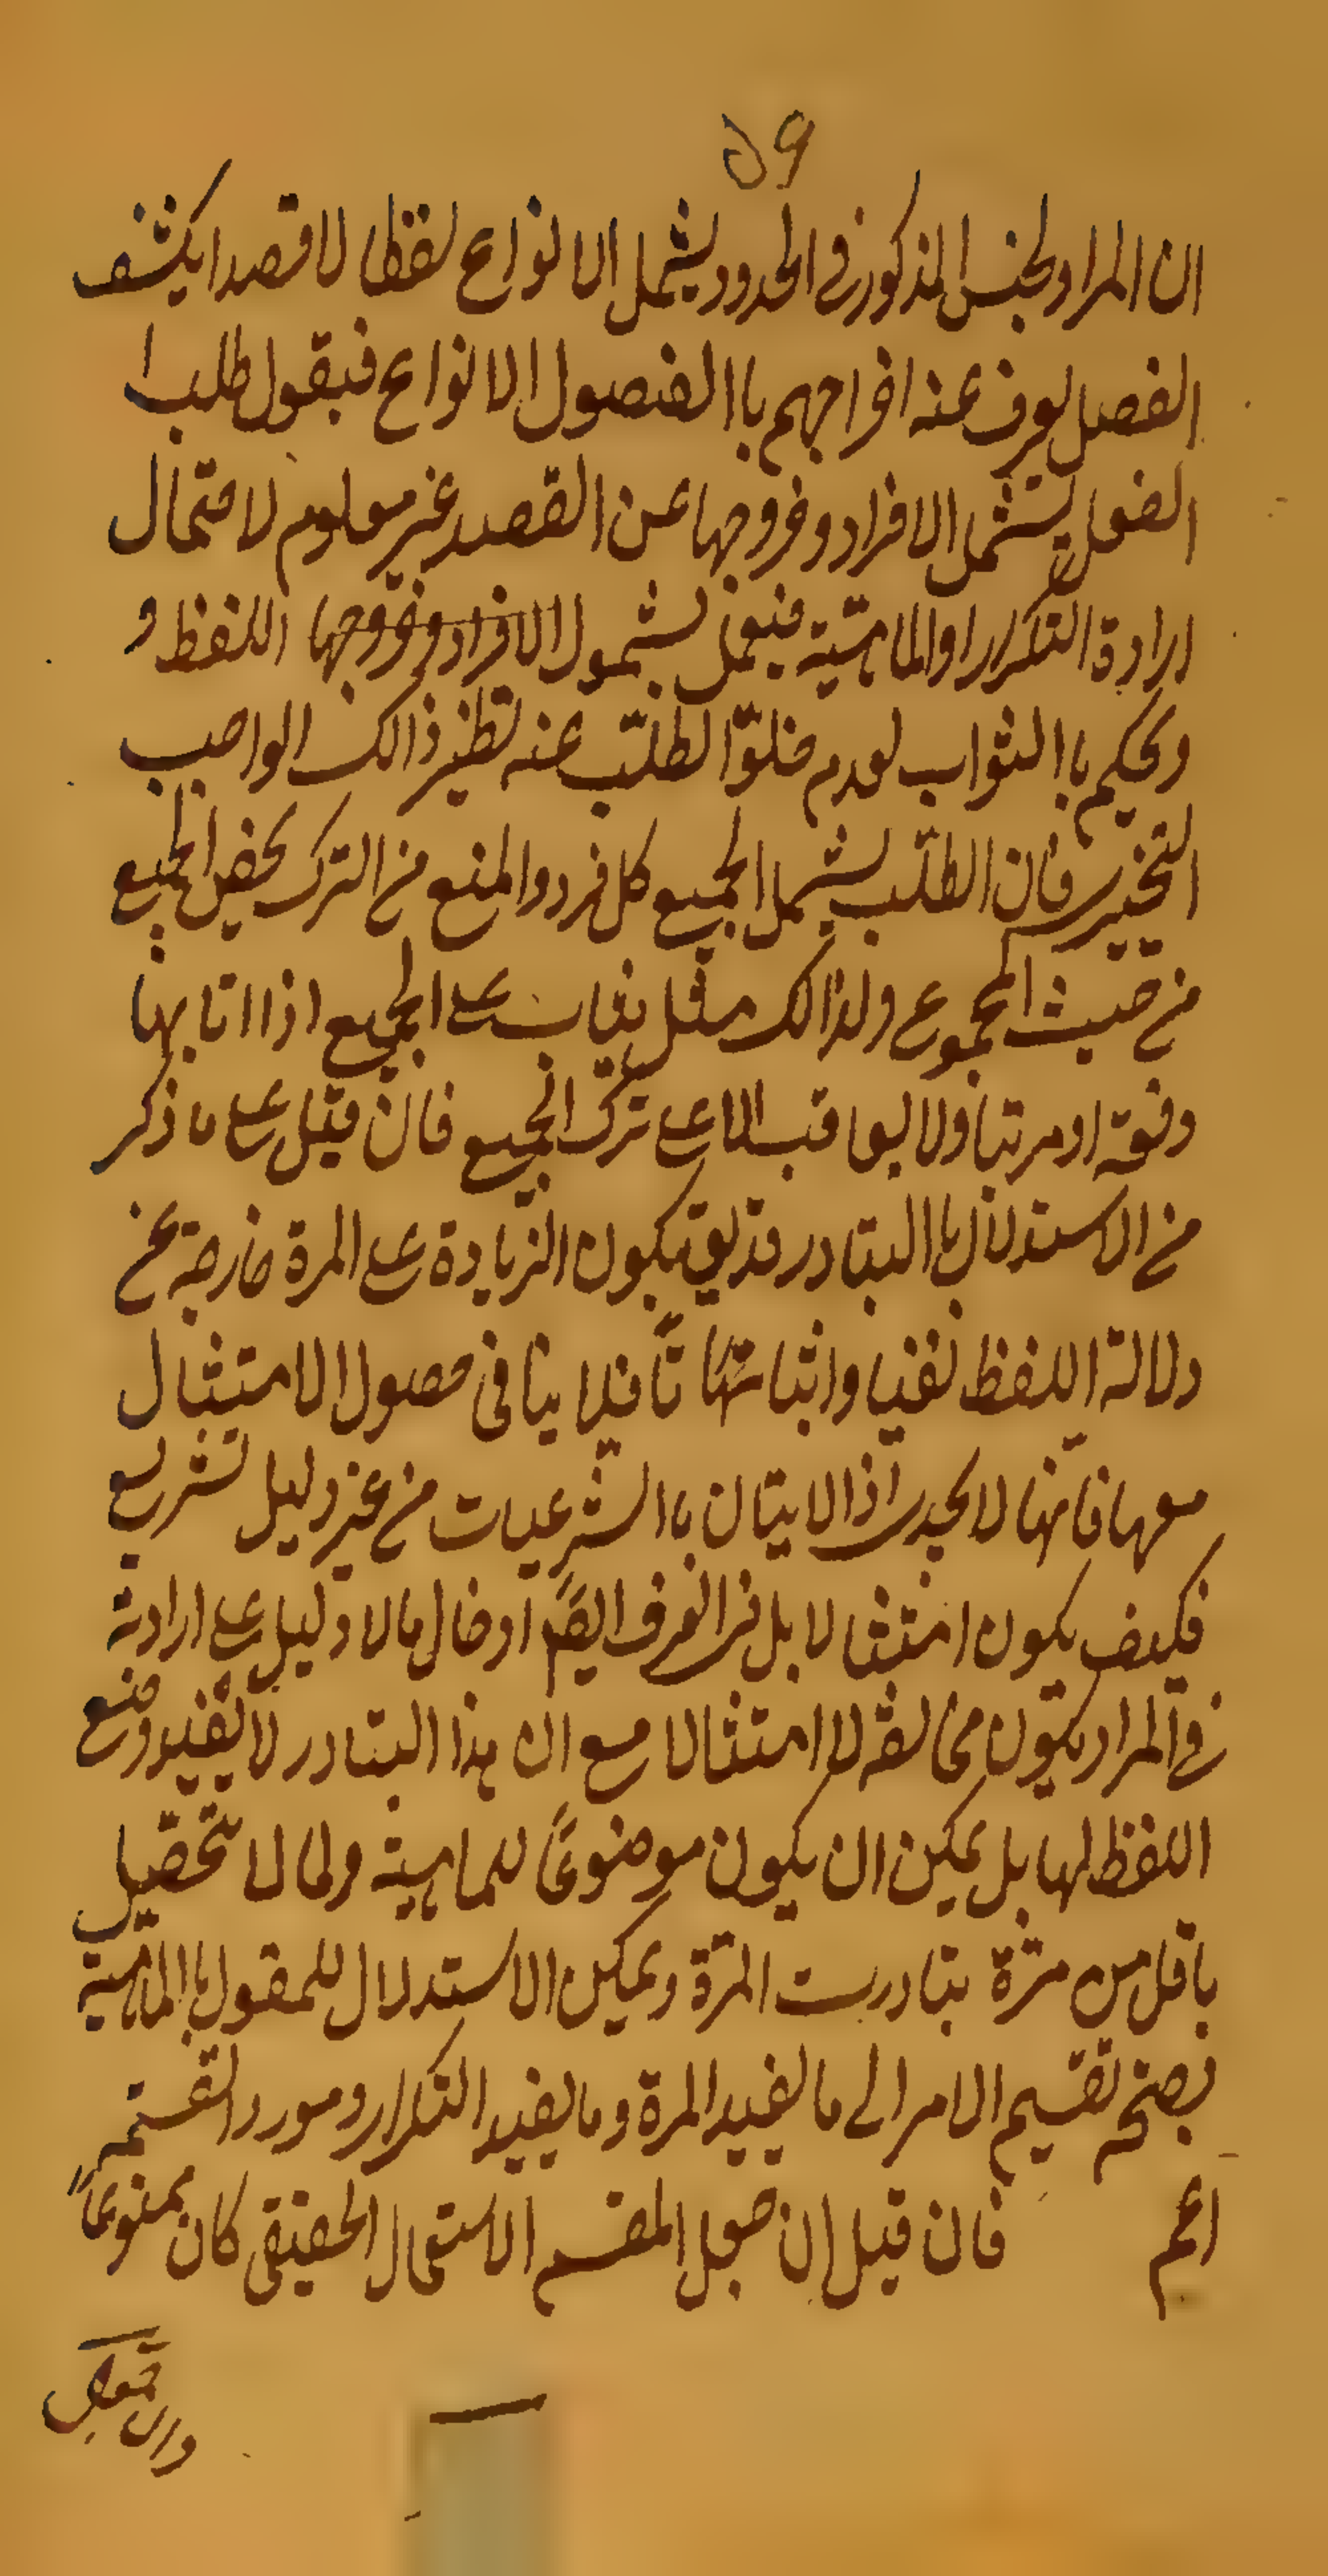 ٥٩
ان المراد لجنس المذكور فى الحدود يشمل الانواع لفظا لا قصدا يكشف
الفصل يعرف عنه اخراجهم باالفصول الانواع فيقول طلب ا
الفعل يشمل الافراد وخروجها عن القصد غير معلوم لاحتمال
ارادة التكرار او الماهيّة فيعمل بشمول الافراد وخروجها اللفظ و
ويحكم باالثواب لعدم خلوّ الطلب عنه نظير ذالك الواجب
التخيير فان الطلب يشمل الجميع كل فرد والمنع من الترك يخص الجميع
من حيث المجموع ولذالك مثل يثاب على الجميع اذا اتا بها
دفعة او مرتبا ولا يعاقب الا على ترك الجميع فان قيل على ما ذكر
من الاستدلال باالتبادر قد يق بكون الزيادة على المرة خارجة عن
دلالة اللفظ نفيا واثباتا فلا ينافى حصول الامتثال
معها فانها لا يجدى اذ الايتان باالشرعيات من غير دليل تشريع
فكيف يكون امتثالا بل فى العرف ايضا ادخال مالا دليل على ارادته
فى المراد يكون مخالفة لا امتثالا مع ان هذا التبادر لا يفيد وضع
اللفظ لها بل يمكن ان يكون موضوعًا للماهية ولما لا تحصيل
باقل من مرّة يتبادرت المرّة ويمكن الاستدلال للمقول باالماهية
بصحة تقسيم الامر الى ما يفيد المرة وما يفيد التكرار ومورد القسمة
اعم فان قيل ان جعل المقسم الاستعمال الحقيقى كان ممنوعًا
وان جعل